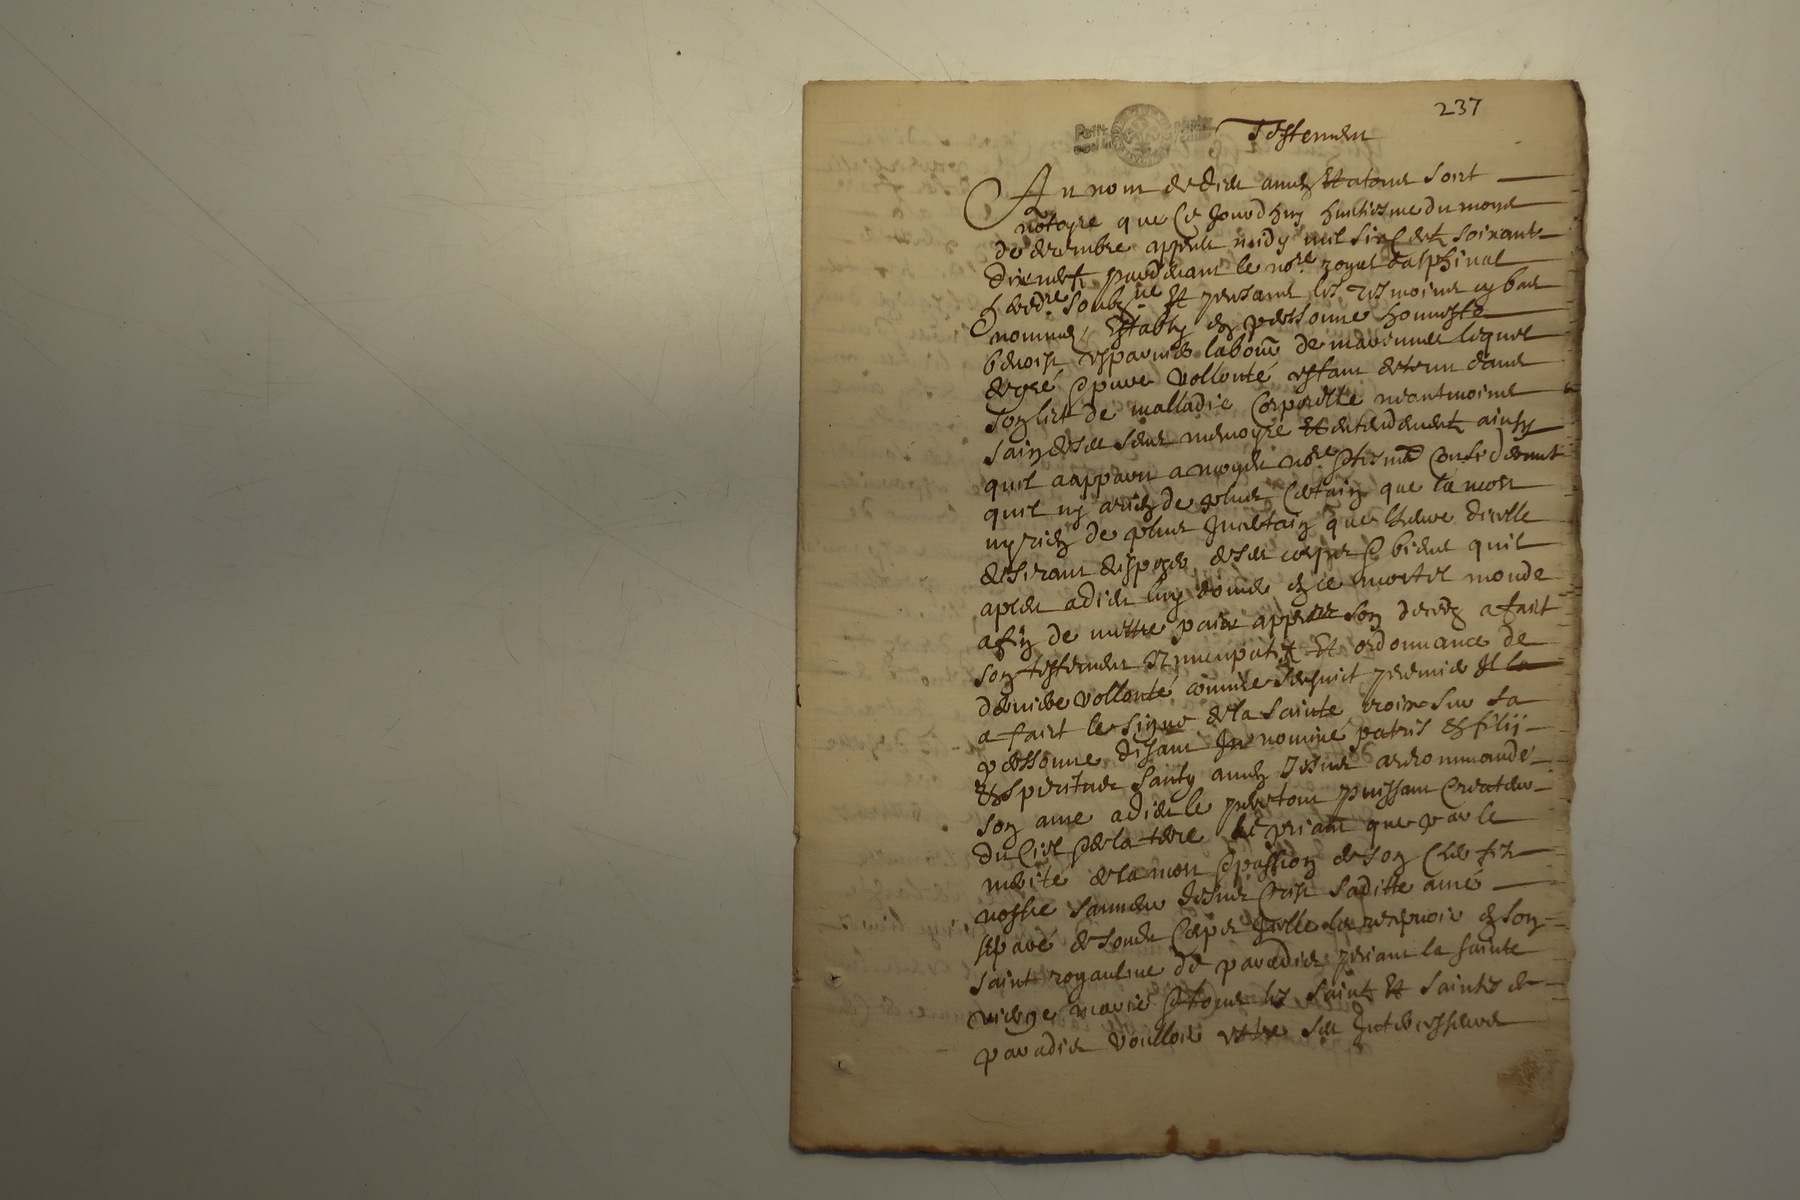 237
Testemen
Au nom de dieu amen Et atous soict
notoyre que Ce Jourdhuy huictiesme du moys
de decembre appres midy mil six Cent soixante
dix neuf pardevant le nore royal dalphinal
heredre soubzne Et presans les tesmoins cy bas
nommes Estably en personne honneste
benoist labour de lequel
de gre & pure vollonte estant detenu dans
son lict de malladie Corporelle neantmoins
sain de ses sens memoyre Et entendement ainsy
quil a apparu a moydt nore & tesmo Considerant
quil ny a rien de plus Certain que la mort
ny rien de plus Incertain que lheure dicelle
desirant disposer de ses corps & biens quil
a pleu a dieu luy donner en ce mortel monde
afin de mettre paix appres son deces a faict
son testement Nuncupatif Et ordonnance de
derniere vollonté comme sensuit premier Et la
a faict le signe de la sainte croix sur sa
personne disant In nomine patris et filij
et speritus santy amen Jesus a recommandé
son ame a dieu le pere tout puissant Createur
du Ciel & de la terre le priant que par le
merite de la mort & passion de son Cher fis
nostre sauveur Jesus Crist saditte ame
separé de sondt Corps Icelle la recepvoir en son
saint royaulme de paradis priant la sainte
vierge marie & tous les saints Et saintes de
paradis voulloir estre ses Intercesseurs